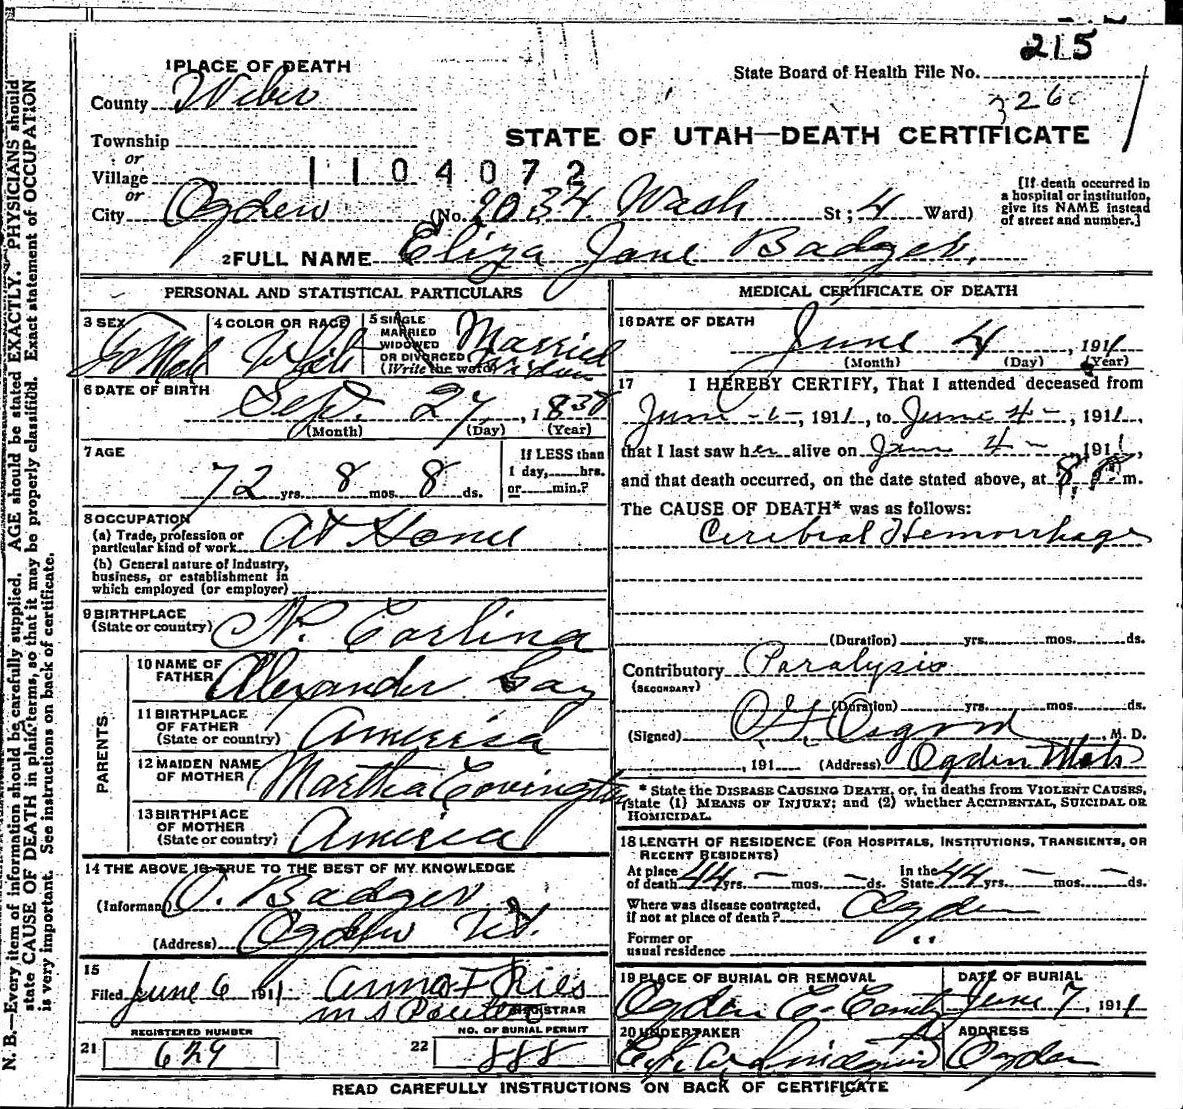 215
1 PLACE OF DEATH
State Board of Health File No.
County Weber
326
STATE OF UTAH—DEATH CERTIFICATE
Township
or
Village
1104072
or
City Ogden (No. 2034 Wash St; 4 Ward)
[If death occurred in a hospital or institution, give its NAME instead of street and number.]
2 FULL NAME Eliza Jane Badger
PERSONAL AND STATISTICAL PARTICULARS
3 SEX
4 COLOR OR RACE
White
5 SINGLE MARRIED WIDOWED OR DIVORCED (Write the word)
Married
6 DATE OF BIRTH
Sept. 27, 1838
(Month) (Day) (Year)
7 AGE
72 yrs. 8 mos. 8 ds.
If LESS than 1 day, hrs. or min.?
8 OCCUPATION
(a) Trade, profession or particular kind of work At Home
(b) General nature of Industry, business, or establishment in which employed (or employer)
9 BIRTHPLACE (State or country) N. Carlina
PARENTS
10 NAME OF FATHER Alexander Gay
11 BIRTHPLACE OF FATHER (State or country) America
12 MAIDEN NAME OF MOTHER Martha Covington
13 BIRTHPLACE OF MOTHER (State or country) America
14 THE ABOVE IS TRUE TO THE BEST OF MY KNOWLEDGE
(Informant) O. Badger
(Address) Ogden Ut.
15
Filed June 6 1911
REGISTRAR
REGISTERED NUMBER
21 629
NO. OF BURIAL PERMIT
22 888
MEDICAL CERTIFICATE OF DEATH
16 DATE OF DEATH
June 4, 1911
(Month) (Day) (Year)
17 I HEREBY CERTIFY, That I attended deceased from
June -1-, 1911, to June 4-, 1911,
that I last saw her alive on June 4- 1911,
and that death occurred, on the date stated above, at 8 P. m.
The CAUSE OF DEATH* was as follows:
Cerebral Hemorrhage
(Duration) yrs. mos. ds.
Contributory Paralysis
(SECONDARY)
(Duration) yrs. mos. ds.
(Signed) Osgood, M. D.
, 191 (Address) Ogden Utah
* State the DISEASE CAUSING DEATH, or, in deaths from VIOLENT CAUSES, state (1) MEANS OF INJURY; and (2) whether ACCIDENTAL, SUICIDAL OR HOMICIDAL.
18 LENGTH OF RESIDENCE (FOR HOSPITALS, INSTITUTIONS, TRANSIENTS, OR RECENT RESIDENTS)
At place of death 44 yrs. — mos. — ds. In the State 44 yrs. — mos. — ds.
Where was disease contracted, if not at place of death? Ogden
Former or usual residence "
19 PLACE OF BURIAL OR REMOVAL
Ogden C. Cemty
DATE OF BURIAL
June 7, 1911
20 UNDERTAKER
ADDRESS
Ogden
READ CAREFULLY INSTRUCTIONS ON BACK OF CERTIFICATE
N. B.—Every item of information should be carefully supplied. AGE should be stated EXACTLY. PHYSICIANS should
state CAUSE OF DEATH in plain terms, so that it may be properly classified. Exact statement of OCCUPATION
is very important. See instructions on back of certificate.